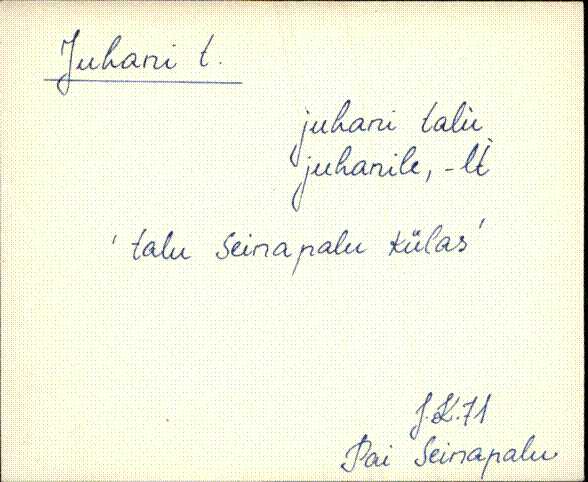 Juhani t.
juhani talu
juhanile, -lt
'talu Seinapalu külas'
J.K.71
Pai Seinapalu